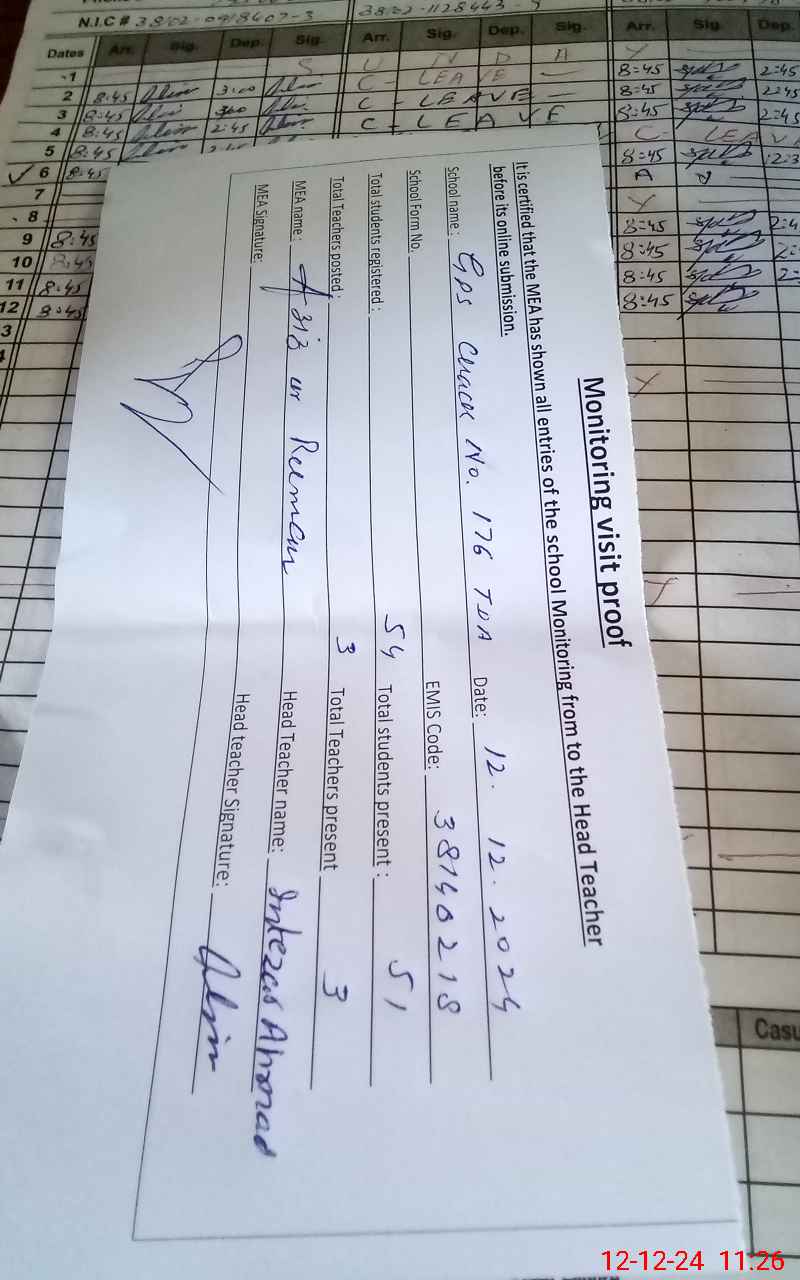 N.I.C # 38102-0918407-3 38102-1128443-5
Dates Arr. Sig. Dep. Sig. Arr. Sig. Dep. Sig. Arr. Sig. Dep.
1 S U N D A Y
2 8:45 3:00 C - LEAVE - 8:45 2:45
3 8:45 300 C - LEAVE - 8:45 2:45
4 8:45 2:45 C - LEAVE 8:45 2:45
5 8:45 C - LEAVE
6 8:45 8:45 12:3
7
8
9 8:45 8:45 2:4
10 8:45 8:45 2:
11 8:45 8:45 2:
12 8:45 8:45
3
Monitoring visit proof
It is certified that the MEA has shown all entries of the school Monitoring from to the Head Teacher
before its online submission.
School name: GPS Chack No. 176 TDA Date: 12. 12. 2024
School Form No. EMIS Code: 38140218
Total students registered: 54 Total students present: 51
Total Teachers posted: 3 Total Teachers present 3
MEA name: Aziz ur Rehman Head Teacher name: Intezar Ahmad
MEA Signature: Head teacher Signature:
Casu
12-12-24 11.26